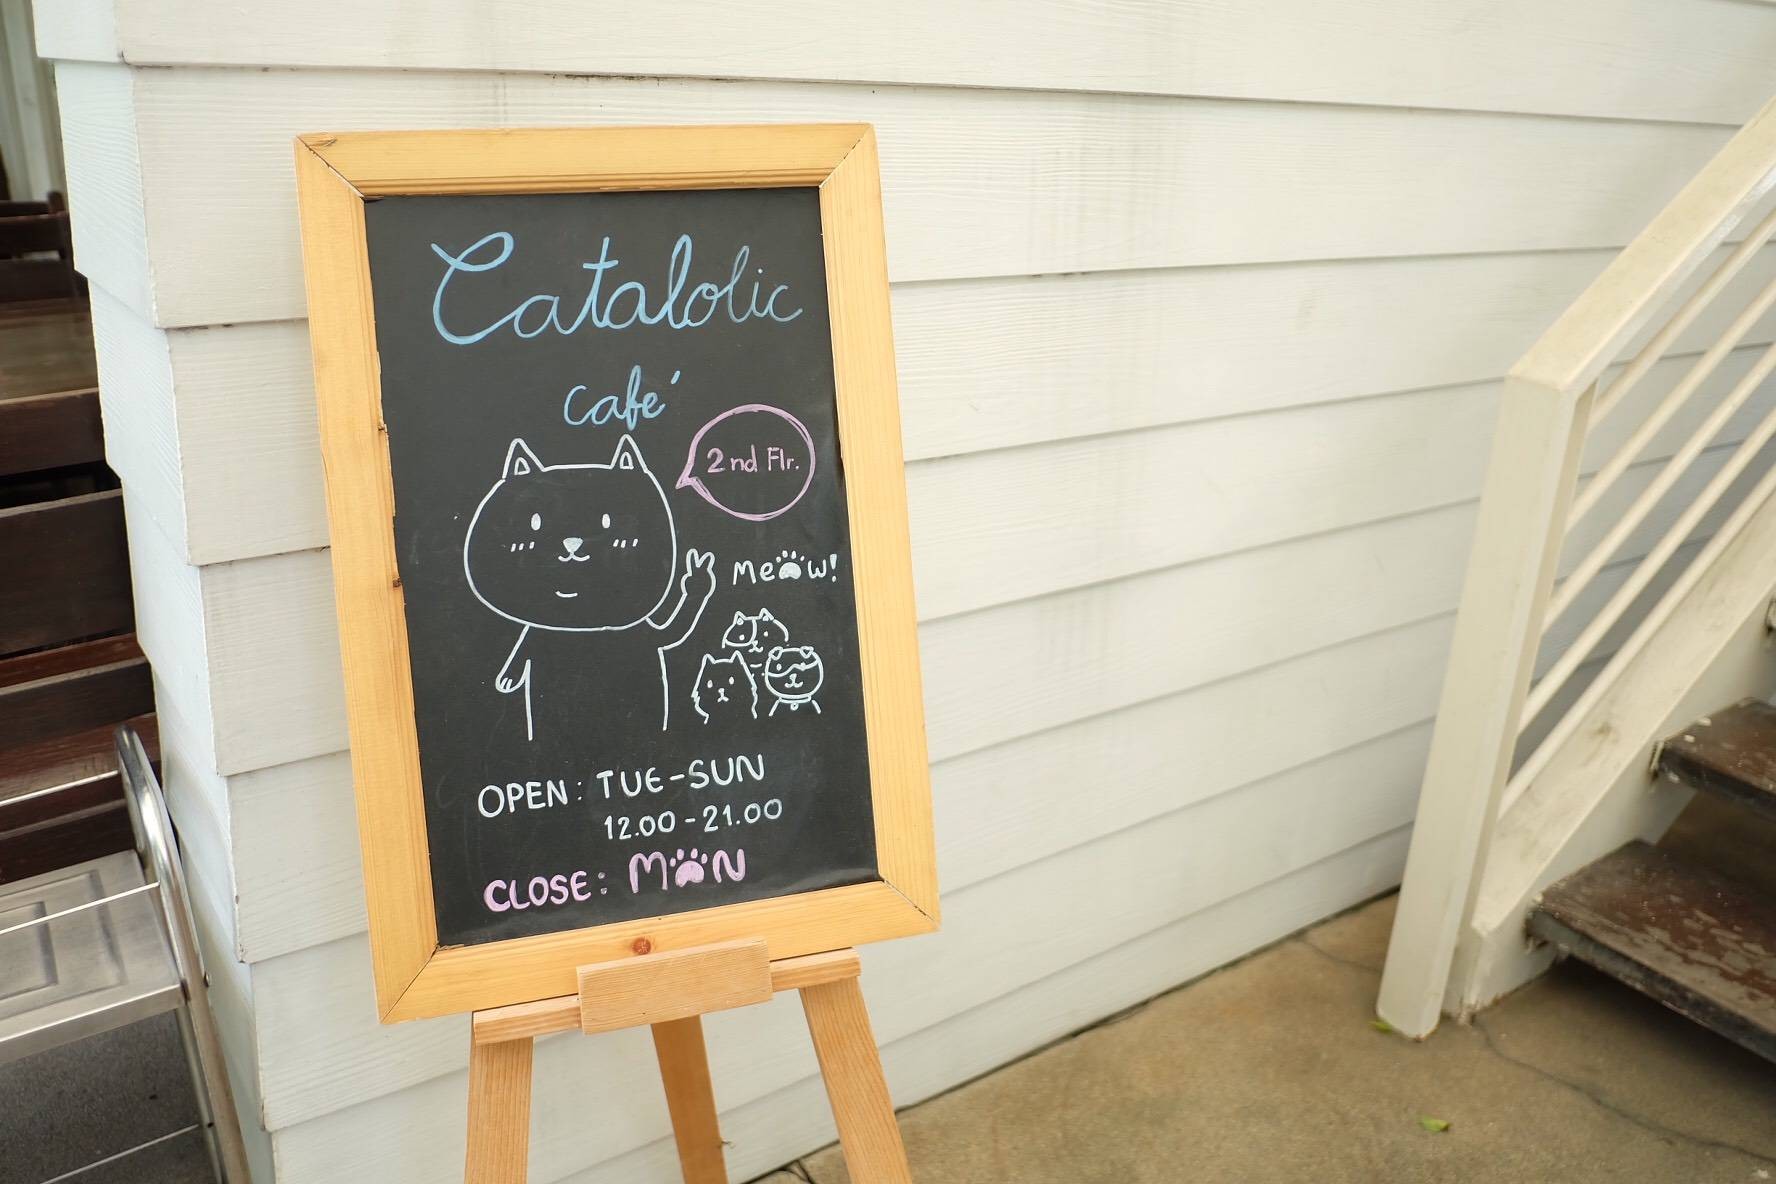 Catalolic
Café
2nd Flr.
Meow!
OPEN: TUE-SUN
12.00-21.00
CLOSE: MON